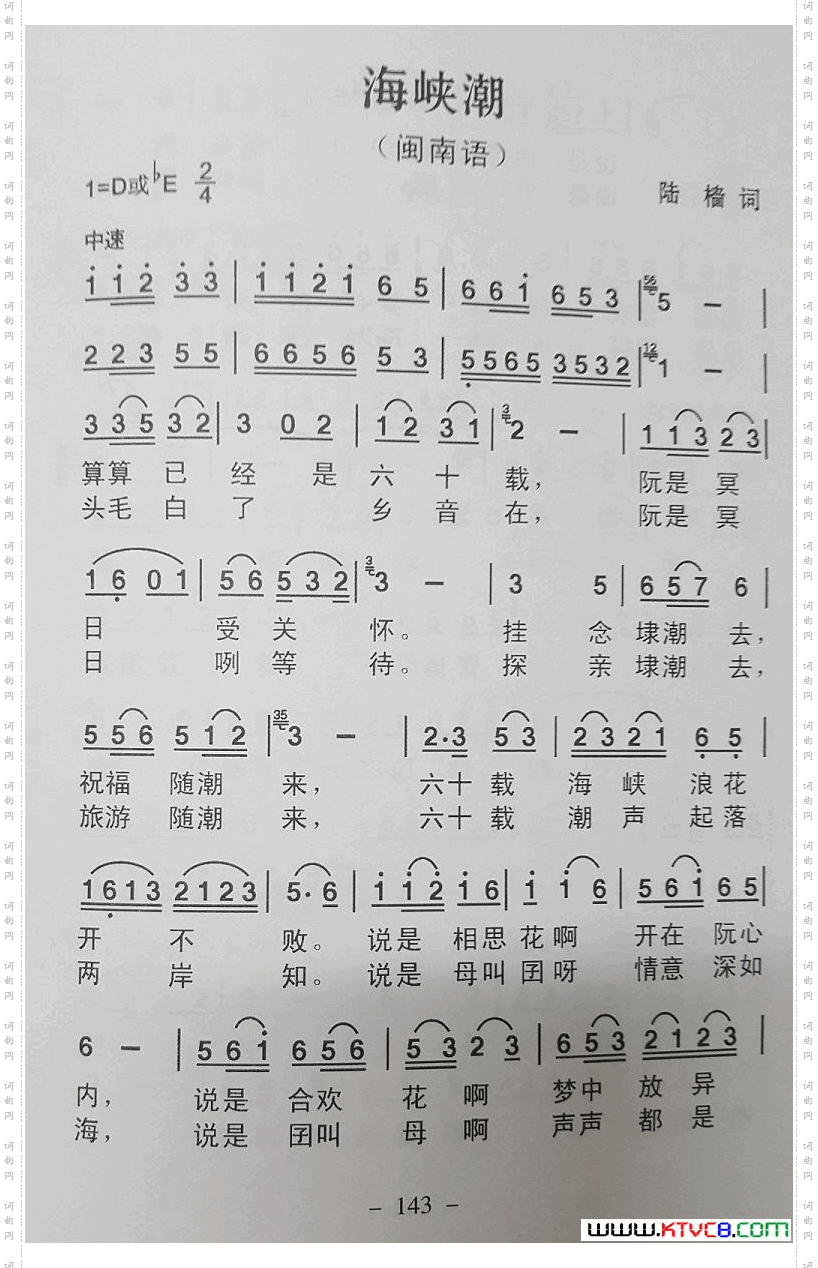 海峡潮
（闽南语）
1=D或♭E 2/4
陆樯词
中速
1 1 2 3 3 | 1 1 2 1 6 5 | 6 6 1 6 5 3 | 56 5 － |
2 2 3 5 5 | 6 6 5 6 5 3 | 5 5 6 5 3 5 3 2 | 12 1 － |
3 3 5 3 2 | 3 0 2 | 1 2 3 1 | 3 2 － | 1 1 3 2 3 |
算算 已 经 是 六 十 载， 阮是 冥
头毛 白 了 乡 音 在， 阮是 冥
1 6 0 1 | 5 6 5 3 2 | 3 3 － | 3 5 | 6 5 7 6 |
日 受 关 怀。 挂 念 埭潮 去，
日 咧 等 待。 探 亲 埭潮 去，
5 5 6 5 1 2 | 35 3 － | 2·3 5 3 | 2 3 2 1 6 5 |
祝福 随潮 来， 六十 载 海 峡 浪花
旅游 随潮 来， 六十 载 潮 声 起落
1 6 1 3 2 1 2 3 | 5· 6 | 1 1 2 1 6 | 1 1 6 | 5 6 1 6 5 |
开 不 败。 说是 相思 花啊 开在 阮心
两 岸 知。 说是 母叫 囝呀 情意 深如
6 － | 5 6 1 6 5 6 | 5 3 2 3 | 6 5 3 2 1 2 3 |
内， 说是 合欢 花 啊 梦中 放 异
海， 说是 囝叫 母 啊 声声 都 是
- 143 -
www.KTVC8.com